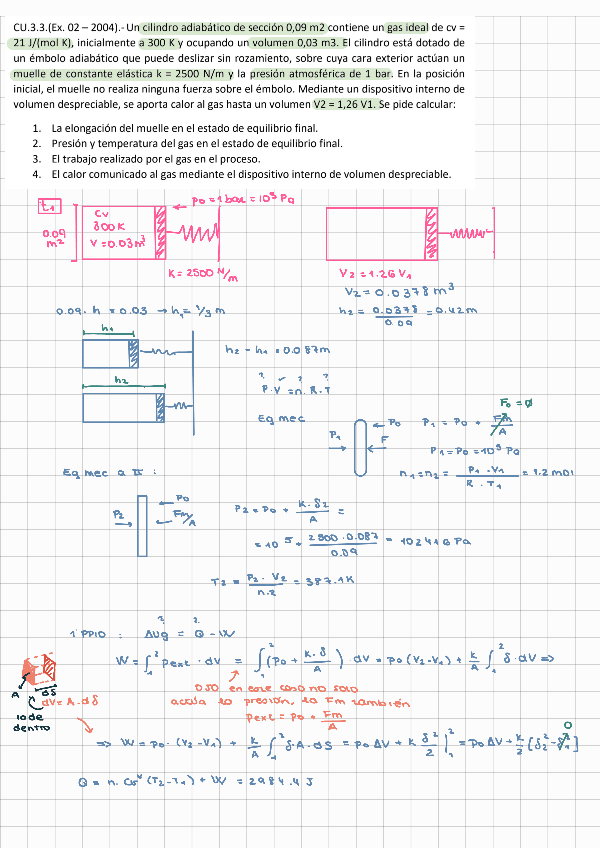 CU.3.3.(Ex. 02 – 2004).- Un cilindro adiabático de sección 0,09 m2 contiene un gas ideal de cv =
21 J/(mol K), inicialmente a 300 K y ocupando un volumen 0,03 m3. El cilindro está dotado de
un émbolo adiabático que puede deslizar sin rozamiento, sobre cuya cara exterior actúan un
muelle de constante elástica k = 2500 N/m y la presión atmosférica de 1 bar. En la posición
inicial, el muelle no realiza ninguna fuerza sobre el émbolo. Mediante un dispositivo interno de
volumen despreciable, se aporta calor al gas hasta un volumen V2 = 1,26 V1. Se pide calcular:
1. La elongación del muelle en el estado de equilibrio final.
2. Presión y temperatura del gas en el estado de equilibrio final.
3. El trabajo realizado por el gas en el proceso.
4. El calor comunicado al gas mediante el dispositivo interno de volumen despreciable.
t1
P0 = 1 bar = 10^5 Pa
0.09 m²
Cv
300K
V = 0.03 m³
K = 2500 N/m
V2 = 1.26 V1
V2 = 0.0378 m³
0.09 · h = 0.03 → h1 = 1/3 m
h2 = 0.0378/0.09 = 0.42 m
h1
h2 - h1 = 0.087m
h2
? ✓ ? ?
P·V = n·R·T
Eq mec
P1
P0
F
F0 = ∅
P1 = P0 + Fm/A
P1 = P0 = 10^5 Pa
n1 = n2 = P1·V1 / R·T1 = 1.2 mol
Eq mec a II :
P2
P0
Fm/A
P2 = P0 + K·δ2/A =
= 10^5 + 2500·0.087/0.09 = 102416 Pa
T2 = P2·V2/n·R = 387.1K
? ?
1º PPIO : ΔUg = Q - W
W = ∫₁² Pext · dV = ∫₁² (P0 + K·δ/A) · dV = P0 (V2-V1) + K/A ∫₁² δ·dV =>
A
dδ
dV = A·dδ
lo de dentro
OJO en este caso no solo
actúa la presión, la Fm también
Pext = P0 + Fm/A
=> W = P0 · (V2-V1) + K/A ∫₁² δ·A·dδ = P0 ΔV + K δ²/2 |₁² = P0 ΔV + K/2 [δ2² - δ1²]
0
Q = n·Cv (T2-T1) + W = 2984.4 J